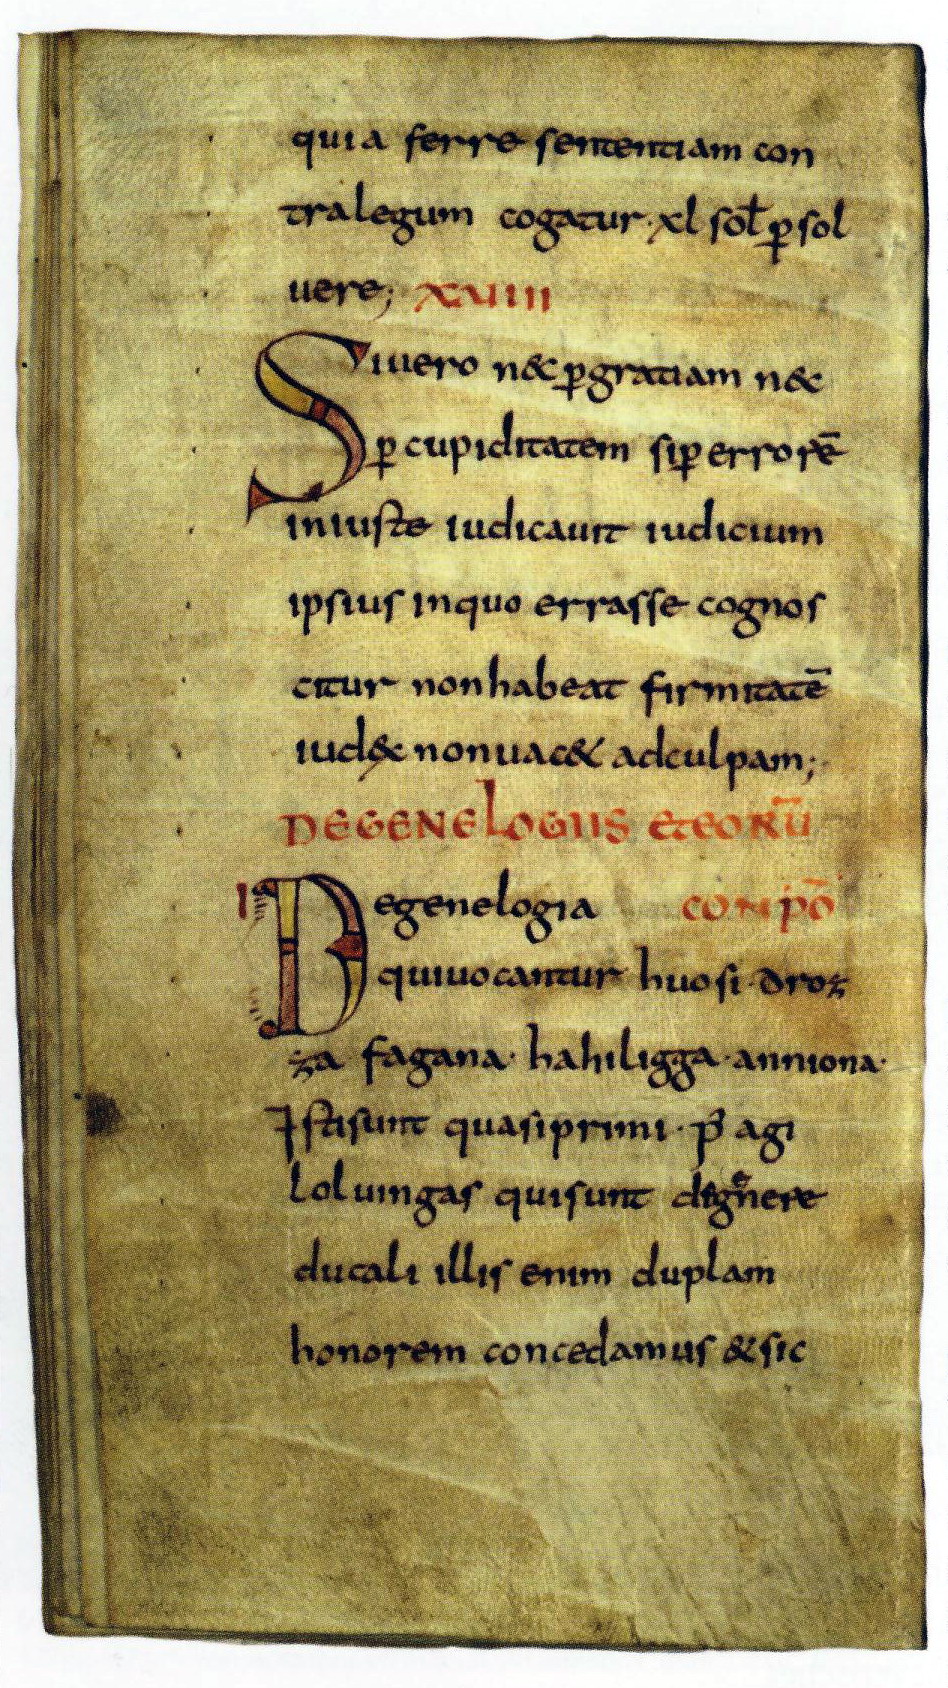 quia ferre sententiam con
tra legum cogatur · xl sol̄ p̱ sol
uere; XVIIII
Si uero nec p̱ gratiam nec
p̱ cupiditatem si p̱ errorē
iniuste iudicauit iudicium
ipsius in quo errasse cognos
citur non habeat firmitatē
iudex non uac& ad culpam;
DE GENELOGIIS ET EORŪ
I De genelogia COMPŌ
qui uocantur huosi · droz
za fagana · hahiligga · anniona ·
Isti sunt quasi primi · p̄ agi
loluingas qui sunt de genere
ducali illis enim duplam
honorem concedamus & sic